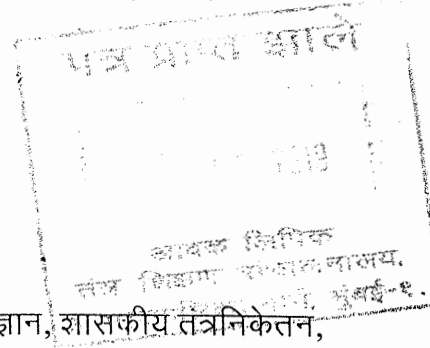 पत्र प्राप्त झाले
आवक लिपिक
तंत्र शिक्षण संचालनालय,
मुंबई-१.
ज्ञान, शासकीय तंत्रनिकेतन,